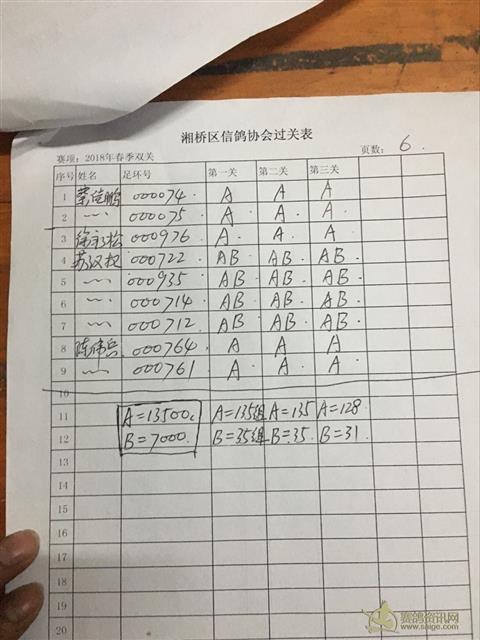 湘桥区信鸽协会过关表
赛项：2018年春季双关 页数： 6.
序号 姓名 足环号 第一关 第二关 第三关
1 000074. A A A
2 〃 000075. A. A. A.
3 000976 A. A. A
4 苏汉权 000722 AB AB. AB.
5 〃 000935 AB. AB. AB.
6 〃 000714 AB. AB. AB.
7 〃 000712 AB. AB. AB.
8 陈伟兵 000764 A A A
9 〃 000761 A. A. A.
10
11 A=13500. A=135组 A=135 A=128
12 B=7000. B=35组 B=35. B=31.
13
14
15
16
17
18
19
20
赛鸽资讯网
www.saige.com